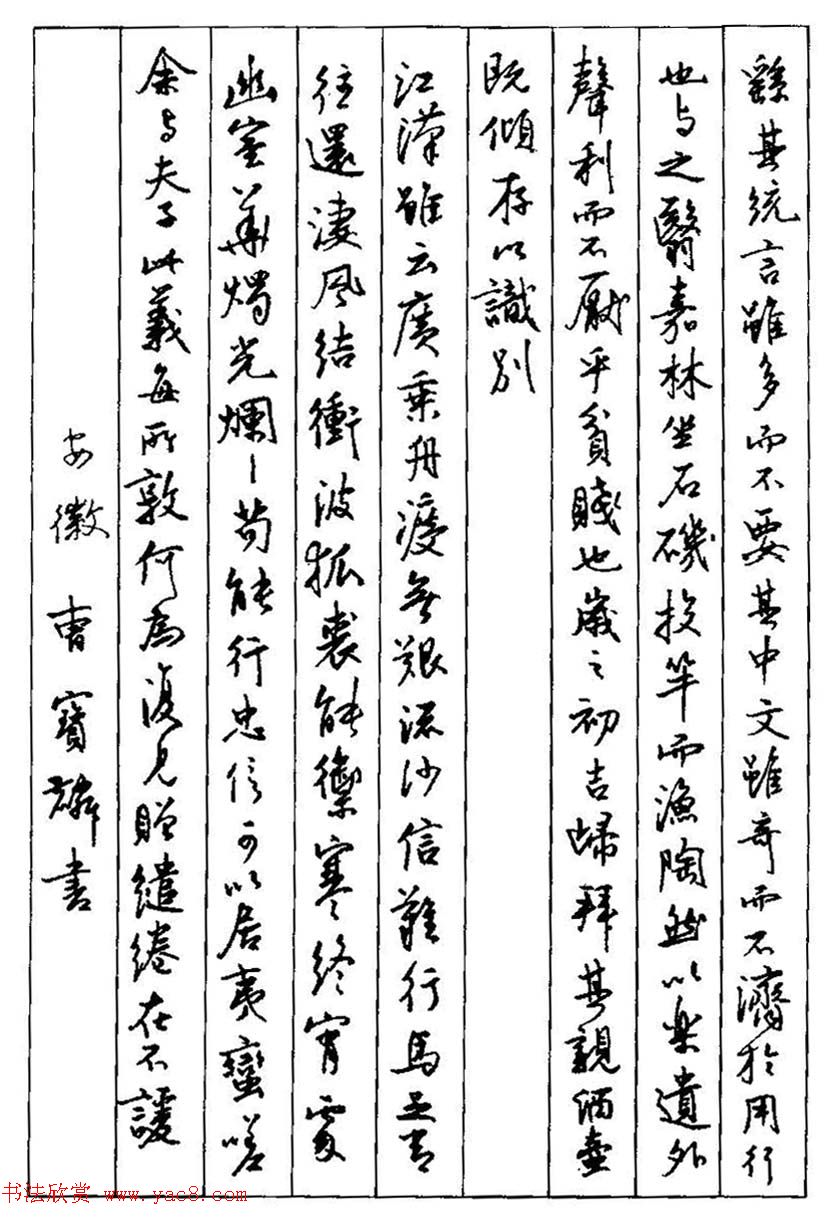 繇其统言雖多而不要其中文雖奇而不濟於用行
也与之翳嘉林坐石磯投竿而漁陶然以樂遺外
聲利而不厭乎貧賤也歲之初吉歸拜其親酒壺
既傾存以識別
江漢雖云廣乘舟渡無艱流沙信難行馬足常
往還淒風结衝波狐裘能禦寒終宵處
幽室華燭光爛〻苟能行忠信可以居夷蠻嗟
余与夫子此義每所敦何為復見贈繾綣在不諼
安徽 曹寶麟書
书法欣赏 www.yac8.com